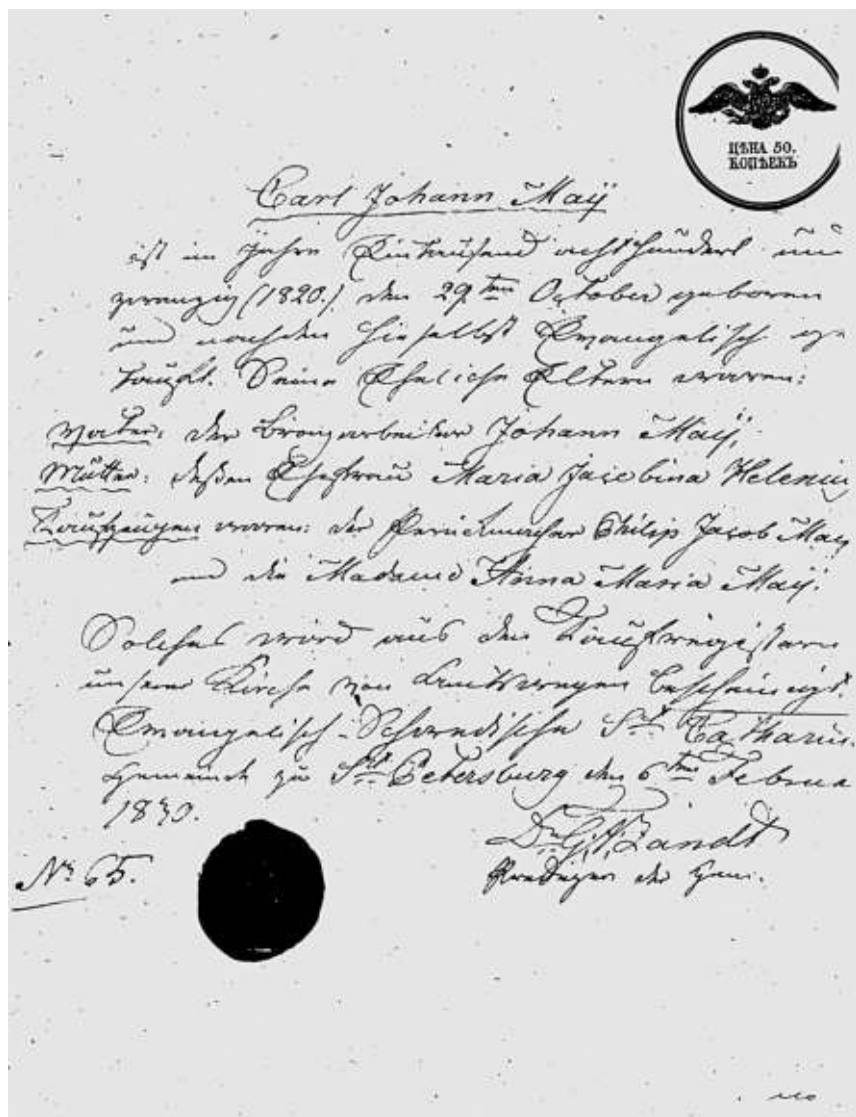 ЦѢНА 50.
КОПѢЕКЪ
Carl Johann Maÿ
ist im Jahre Eintausend achthundert und
zwanzig (1820.) den 29ten October geboren
und nachdem hieselbst Evangelisch ge
tauft. Seine Eheliche Eltern waren:
Vater: der Bronzarbeiter Johann Maÿ,
Mutter: deßen Ehefrau Maria Jacobina Helenius
Taufzeugen waren: der Peruckmacher Philip Jacob May
und die Madame Anna Maria Maÿ.
Solches wird aus den Taufregistern
unserer Kirche von Amtswegen bescheinigt.
Evangelisch-Schwedische St. Catharin.
Gemeinde zu St. Petersburg den 6ten Februa
1830.
Dr. G. A. Zandt
Prediger der Gem.
No 65.